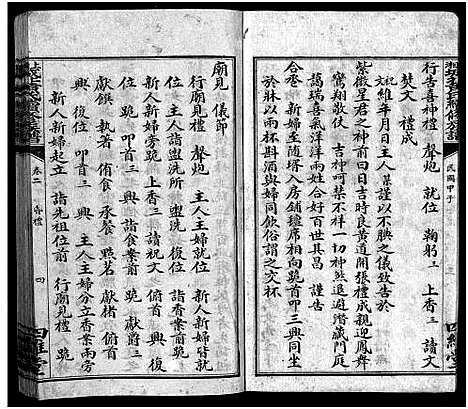 行告喜神禮 聲炮 就位 鞠躬三 上香三 讀文
焚文 禮成
祝文 維年月日主人某謹以不腆之儀致告於
紫微星君之神前曰日吉時良黄道開張禮成親迎鳳舞
鸞翔敬伏 吉神呵禁不祥一切神煞退避潛藏門庭
藹瑞喜氣洋洋兩姓合好百世其昌 謹告
合卺 新婦至随壻入房鋪氊席相向跪首叩三興同坐
於牀以兩杯斟酒與婦同飲俗謂之交杯
民國甲子
四維堂
廟見 儀節
行廟見禮 聲炮 主人主婦就位 新人新婦皆就
位 主人詣盥洗所 盥洗 復位 詣香案前跪
新人新婦旁跪 上香三 讀祝文 俯首 興 復
位 跪 叩首三 興 詣食案前 跪 獻爵三
獻饌 執者 侑食 承餐 點茗 獻楮 俯首
興 復位 跪 叩首三 興 主人主婦分立香案兩旁
新人新婦起立 詣先祖位前 行廟見禮 跪
卷二 昏禮 四
四維堂